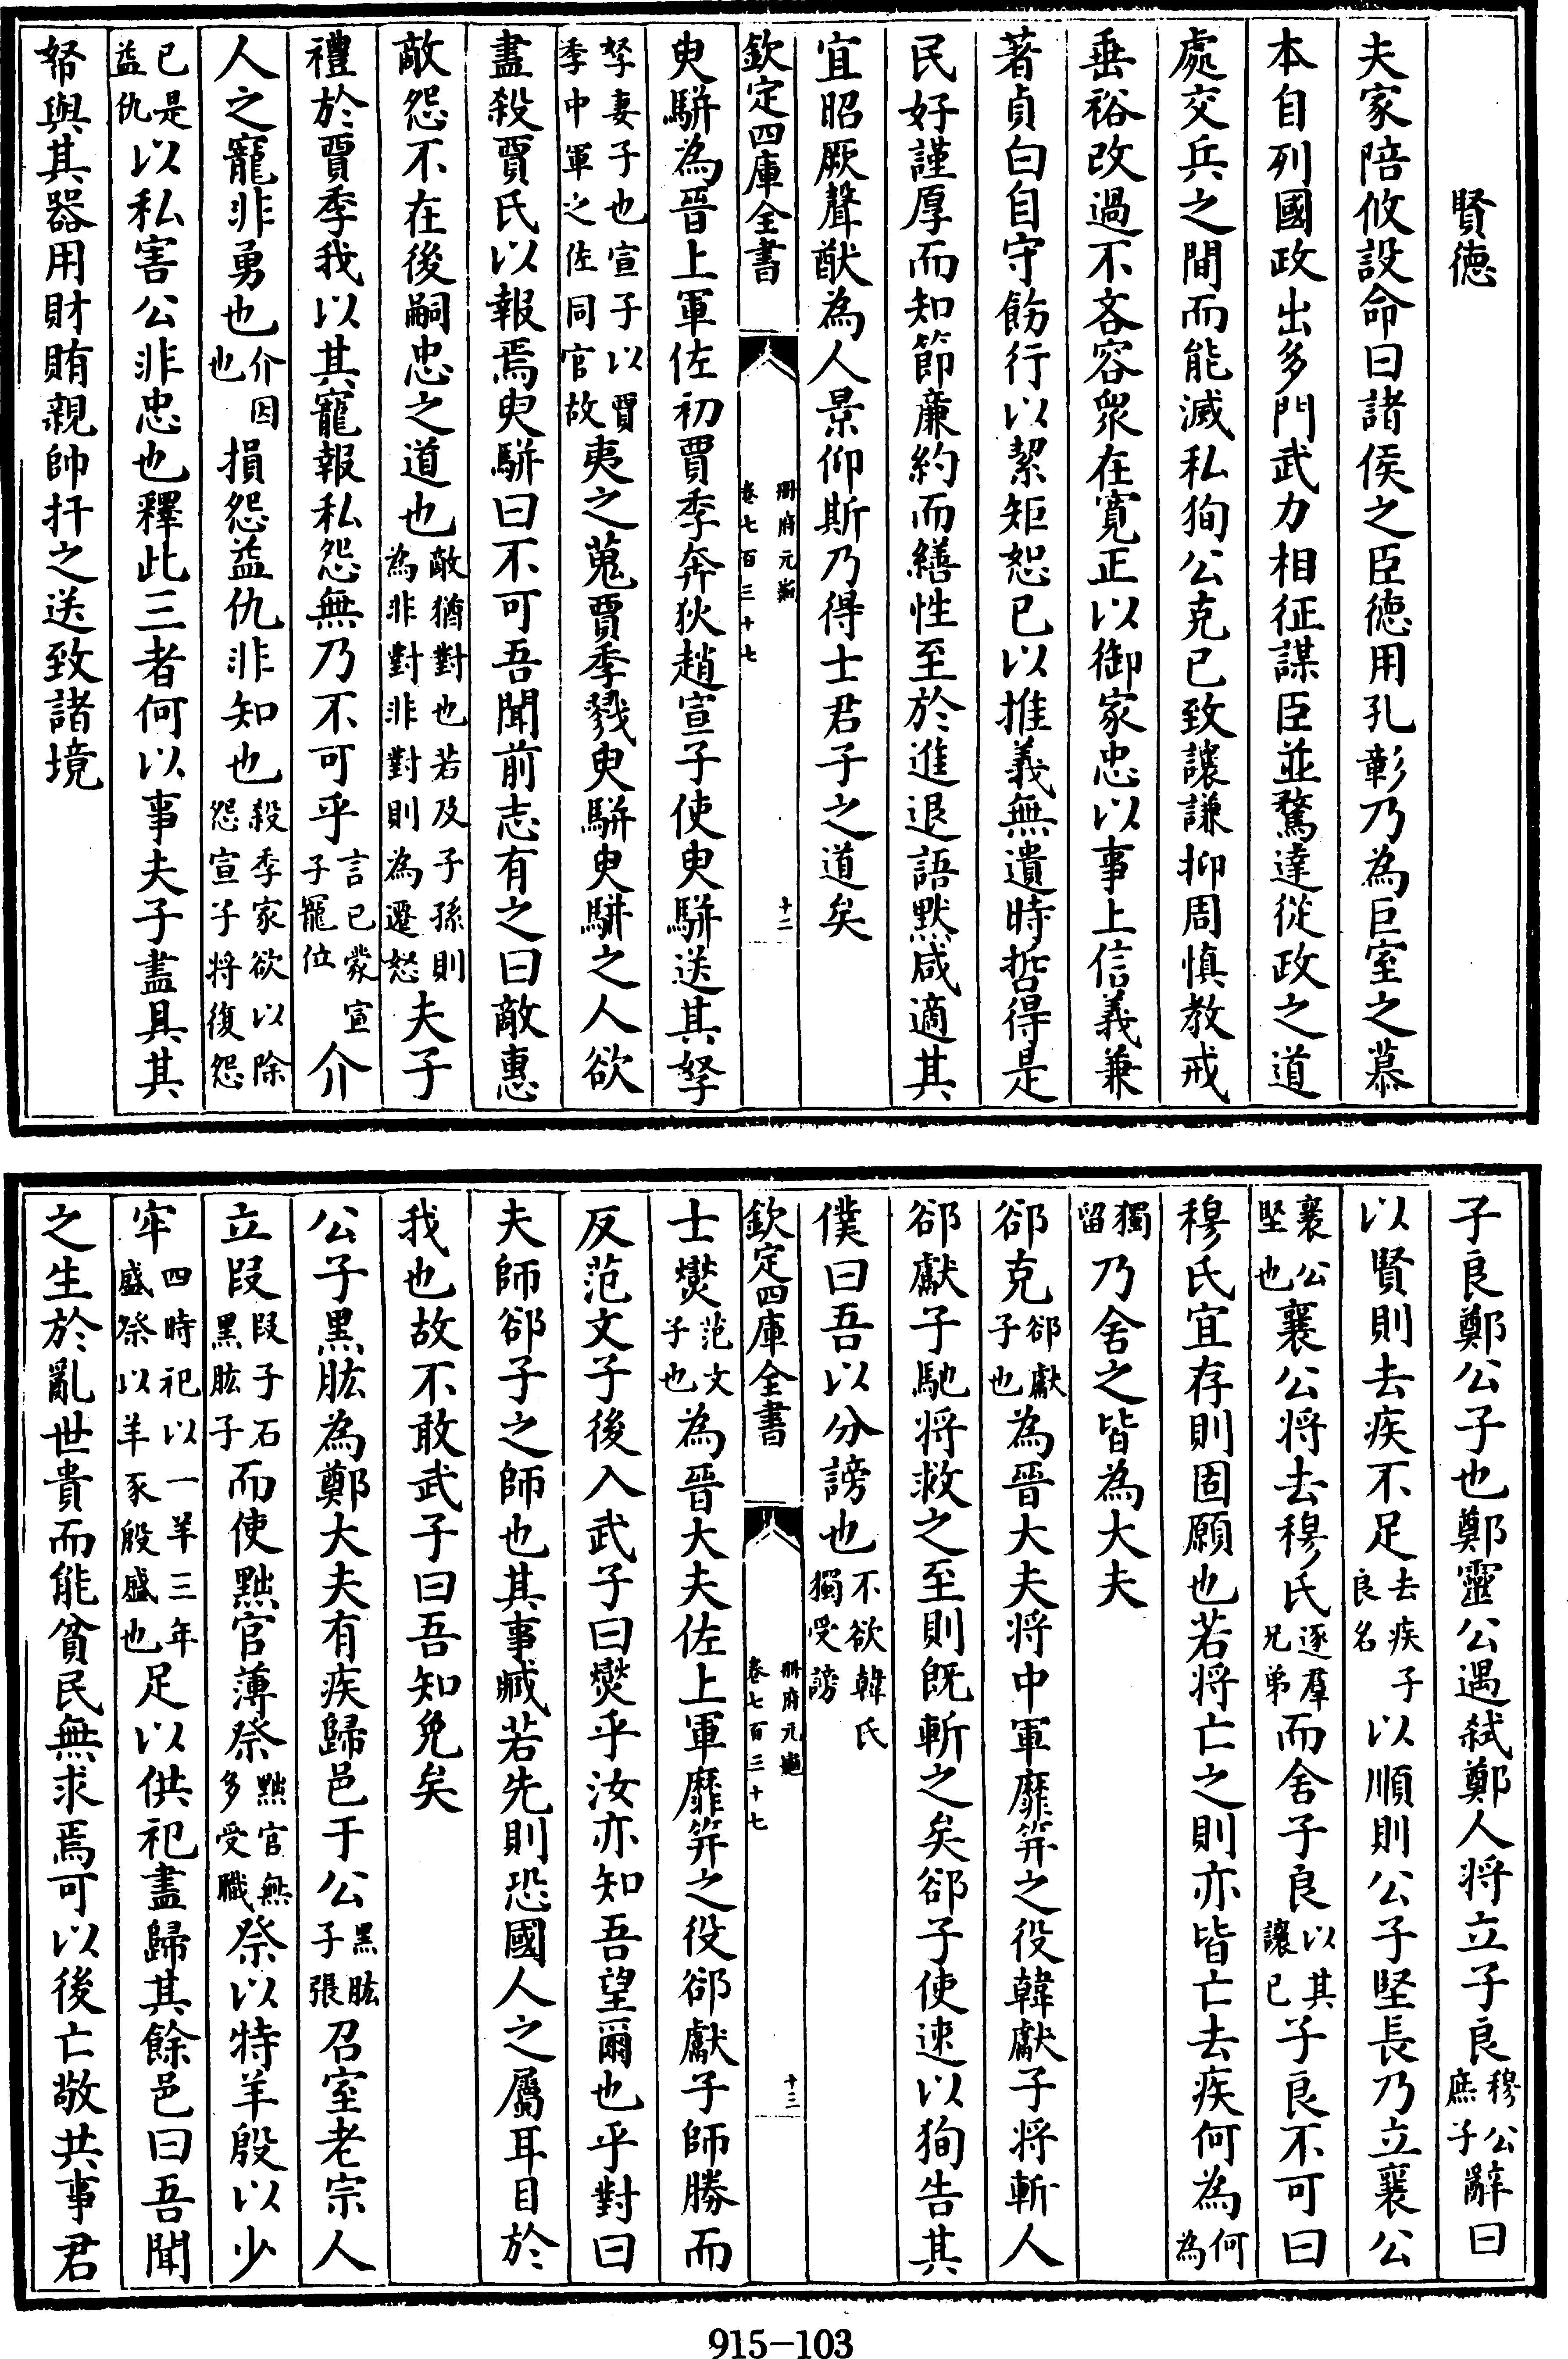 賢徳
夫家陪攸設命曰諸侯之臣徳用孔彰乃為巨室之慕
本自列國政出多門武力相征謀臣並騖達從政之道
處交兵之間而能滅私狥公克已致讓謙抑周慎教戒
垂裕改過不吝容衆在寛正以御家忠以事上信義兼
著貞白自守飭行以絜矩恕已以推義無遺時哲得是
民好謹厚而知節廉約而繕性至於進退語黙咸適其
宜昭厥聲猷為人景仰斯乃得士君子之道矣
欽定四庫全書 冊府元龜卷七百三十七 十二
臾駢為晉上軍佐初賈季奔狄趙宣子使臾駢送其孥
孥妻子也宣子以賈季中軍之佐同官故夷之蒐賈季戮臾駢臾駢之人欲
盡殺賈氏以報焉臾駢曰不可吾聞前志有之曰敵惠
敵怨不在後嗣忠之道也敵猶對也若及子孫則為非對非對則為遷怒夫子
禮於賈季我以其寵報私怨無乃不可乎言已蒙宣子寵位介
人之寵非勇也介因也損怨益仇非知也殺季家欲以除怨宣子将復怨
已是益仇以私害公非忠也釋此三者何以事夫子盡具其
帑與其器用財賄親帥扞之送致諸境
子良鄭公子也鄭靈公遇弒鄭人将立子良穆公庶子辭曰
以賢則去疾不足去疾子良名以順則公子堅長乃立襄公
襄公堅也襄公将去穆氏逐羣兄弟而舍子良以其讓已子良不可曰
穆氏宜存則固願也若将亡之則亦皆亡去疾何為何為
獨留乃舍之皆為大夫
郤克郤獻子也為晉大夫将中軍靡笄之役韓獻子将斬人
郤獻子馳将救之至則既斬之矣郤子使速以狥告其
僕曰吾以分謗也不欲韓氏獨受謗
欽定四庫全書 冊府元龜卷七百三十七 十三
士爕范文子也為晉大夫佐上軍靡笄之役郤獻子師勝而
反范文子後入武子曰爕乎汝亦知吾望爾也乎對曰
夫師郤子之師也其事臧若先則恐國人之屬耳目於
我也故不敢武子曰吾知免矣
公子黒肱為鄭大夫有疾歸邑于公黒肱子張召室老宗人
立段段子石黒肱子而使黜官薄祭黜官無多受職祭以特羊殷以少
牢四時祀以一羊三年盛祭以羊豕殷盛也足以供祀盡歸其餘邑曰吾聞
之生於亂世貴而能貧民無求焉可以後亡敬共事君
915-103